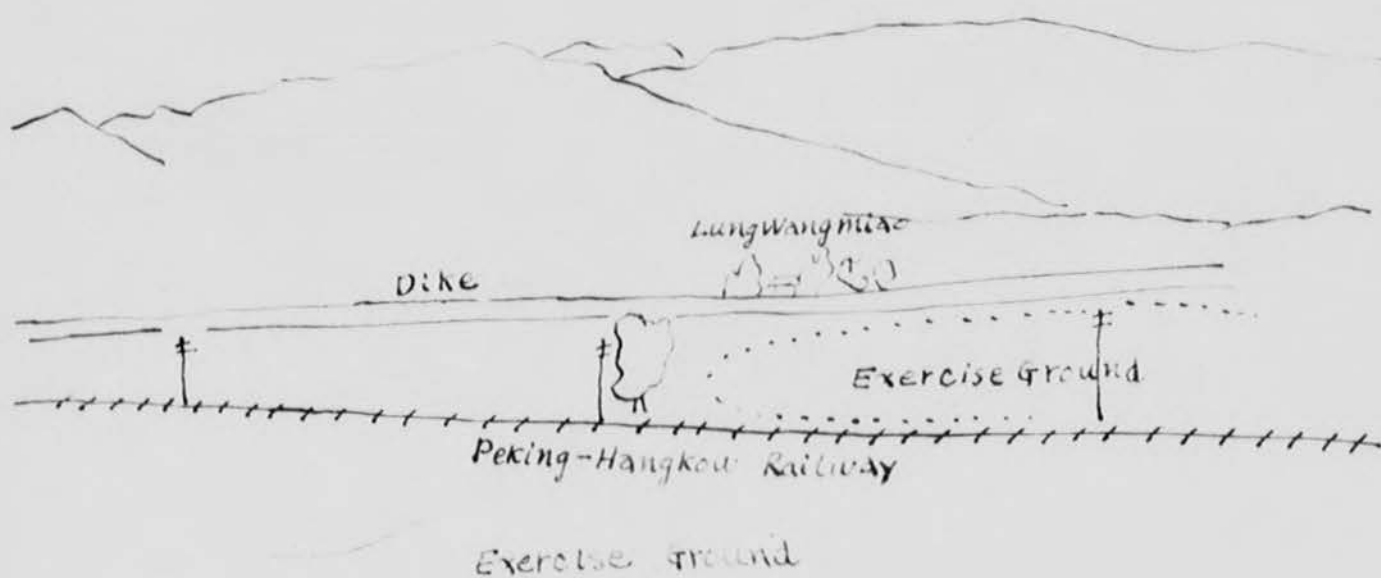 LungWangmiao
Dike
Exercise Ground
Peking-Hangkow Railway
Exercise Ground